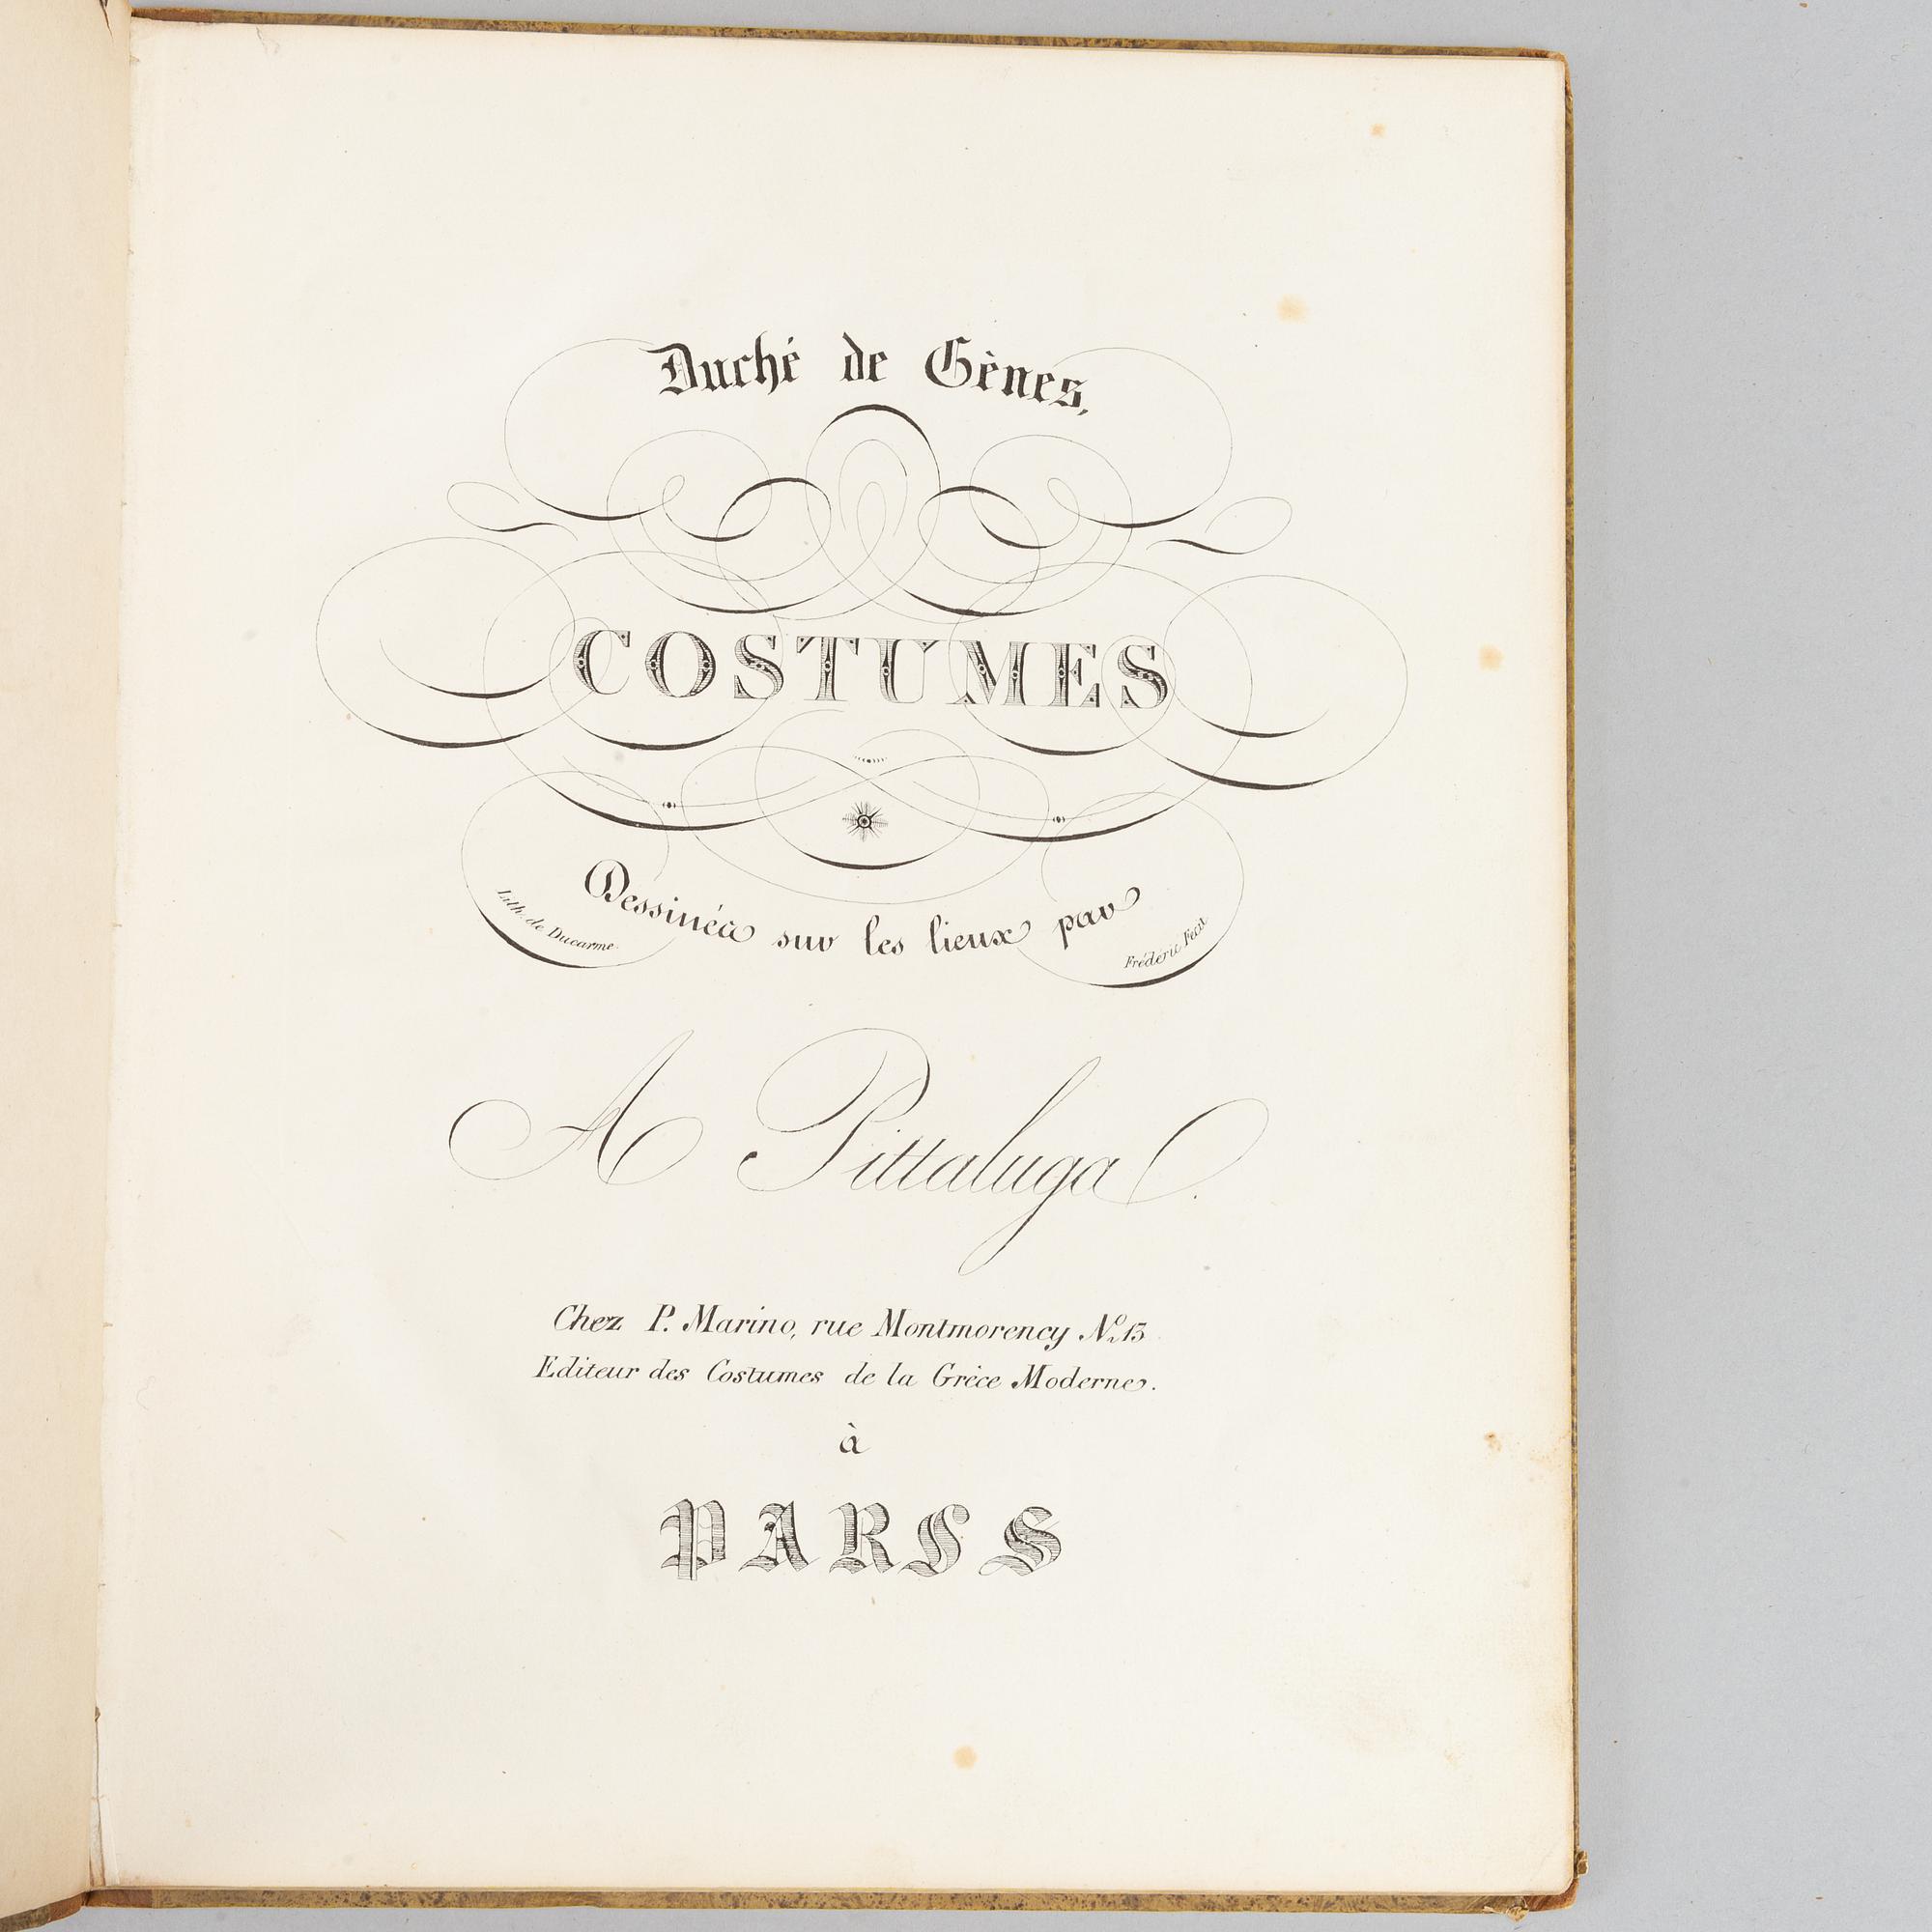 Duché de Gènes,
COSTUMES
Dessinés sur les lieux par
Lith. de Ducarme.
Frédéric Fecit
A Pittaluga.
Chez P. Marino, rue Montmorency N.° 15
Editeur des Costumes de la Grèce Moderne.
à
PARIS